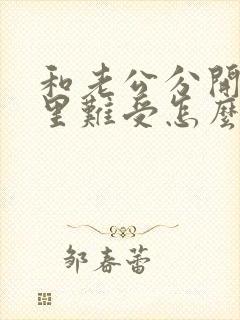 和老公分開
里難受怎麼
邹春蕾